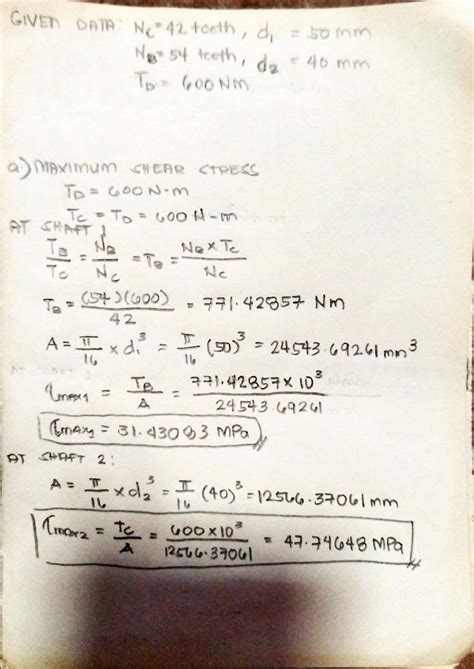 GIVEN DATA: Nc = 42 teeth, d₁ = 50 mm
NB = 54 teeth, d₂ = 40 mm
TD = 600 Nm
a.) MAXIMUM SHEAR STRESS
TD = 600 N-m
Tc = TD = 600 N-m
AT SHAFT 1
TB/Tc = NB/Nc = TB = NB x Tc/Nc
TB = (54)(600)/42 = 771.42857 Nm
A = π/16 x d₁³ = π/16 (50)³ = 24543.69261 mm³
τmax₁ = TB/A = 771.42857 x 10³/24543.69261
τmax₁ = 31.43083 MPa
AT SHAFT 2:
A = π/16 x d₂³ = π/16 (40)³ = 12566.37061 mm
τmax₂ = Tc/A = 600x10³/12566.37061 = 47.74648 MPa